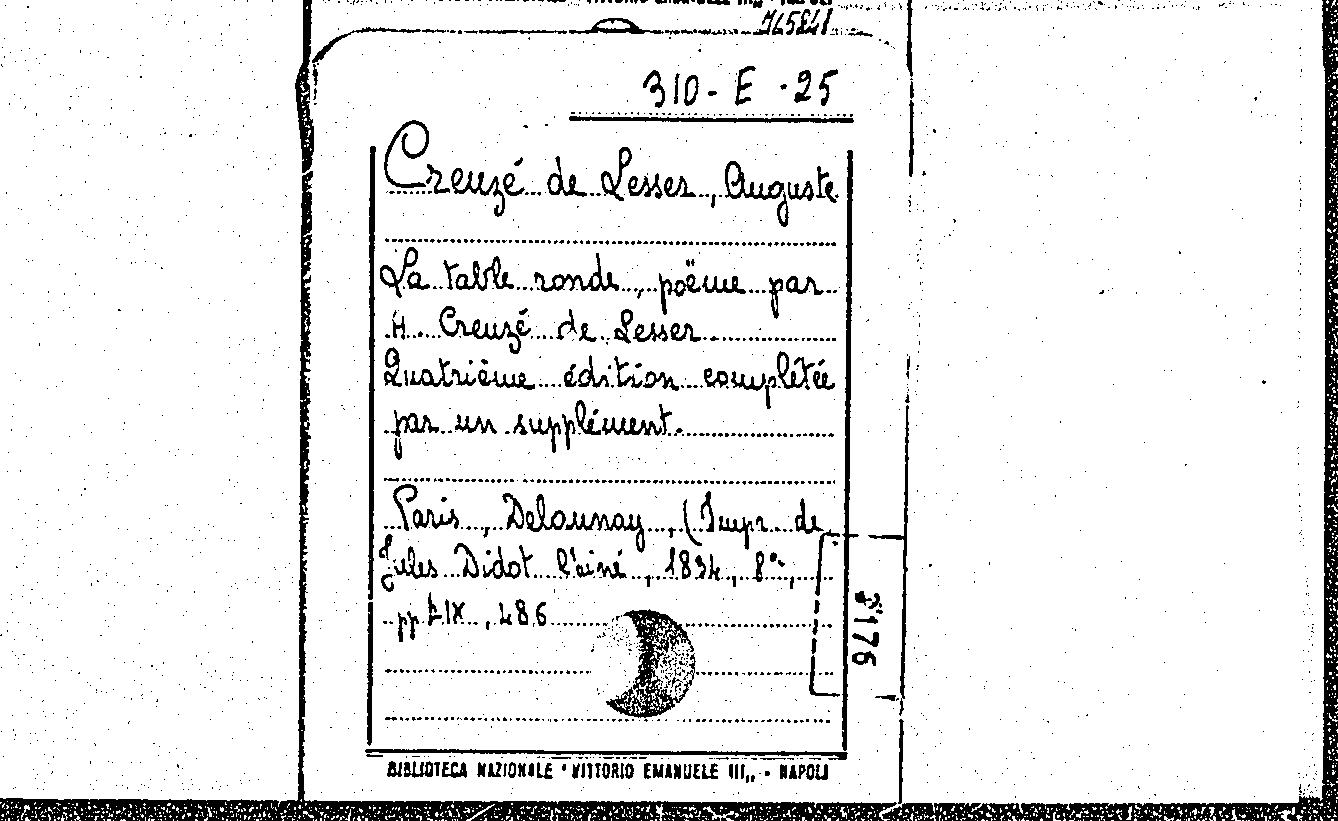 310 - E - 25
Creuzé de Lesser, Auguste
La table ronde, poëme par
M. Creuzé de Lesser.
Quatrième édition complétée
par un supplément.
Paris, Delaunay, (Impr. de
Jules Didot l'ainé, 1834, 8°,
pp LIX, 486
176
BIBLIOTECA NAZIONALE "VITTORIO EMANUELE III„ - NAPOLI